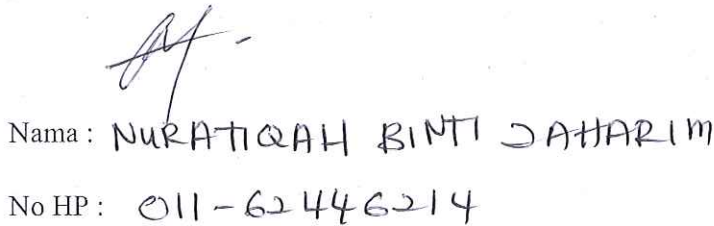 Nama : NURATIQAH BINTI JAHARIM
No HP : 011-62446214